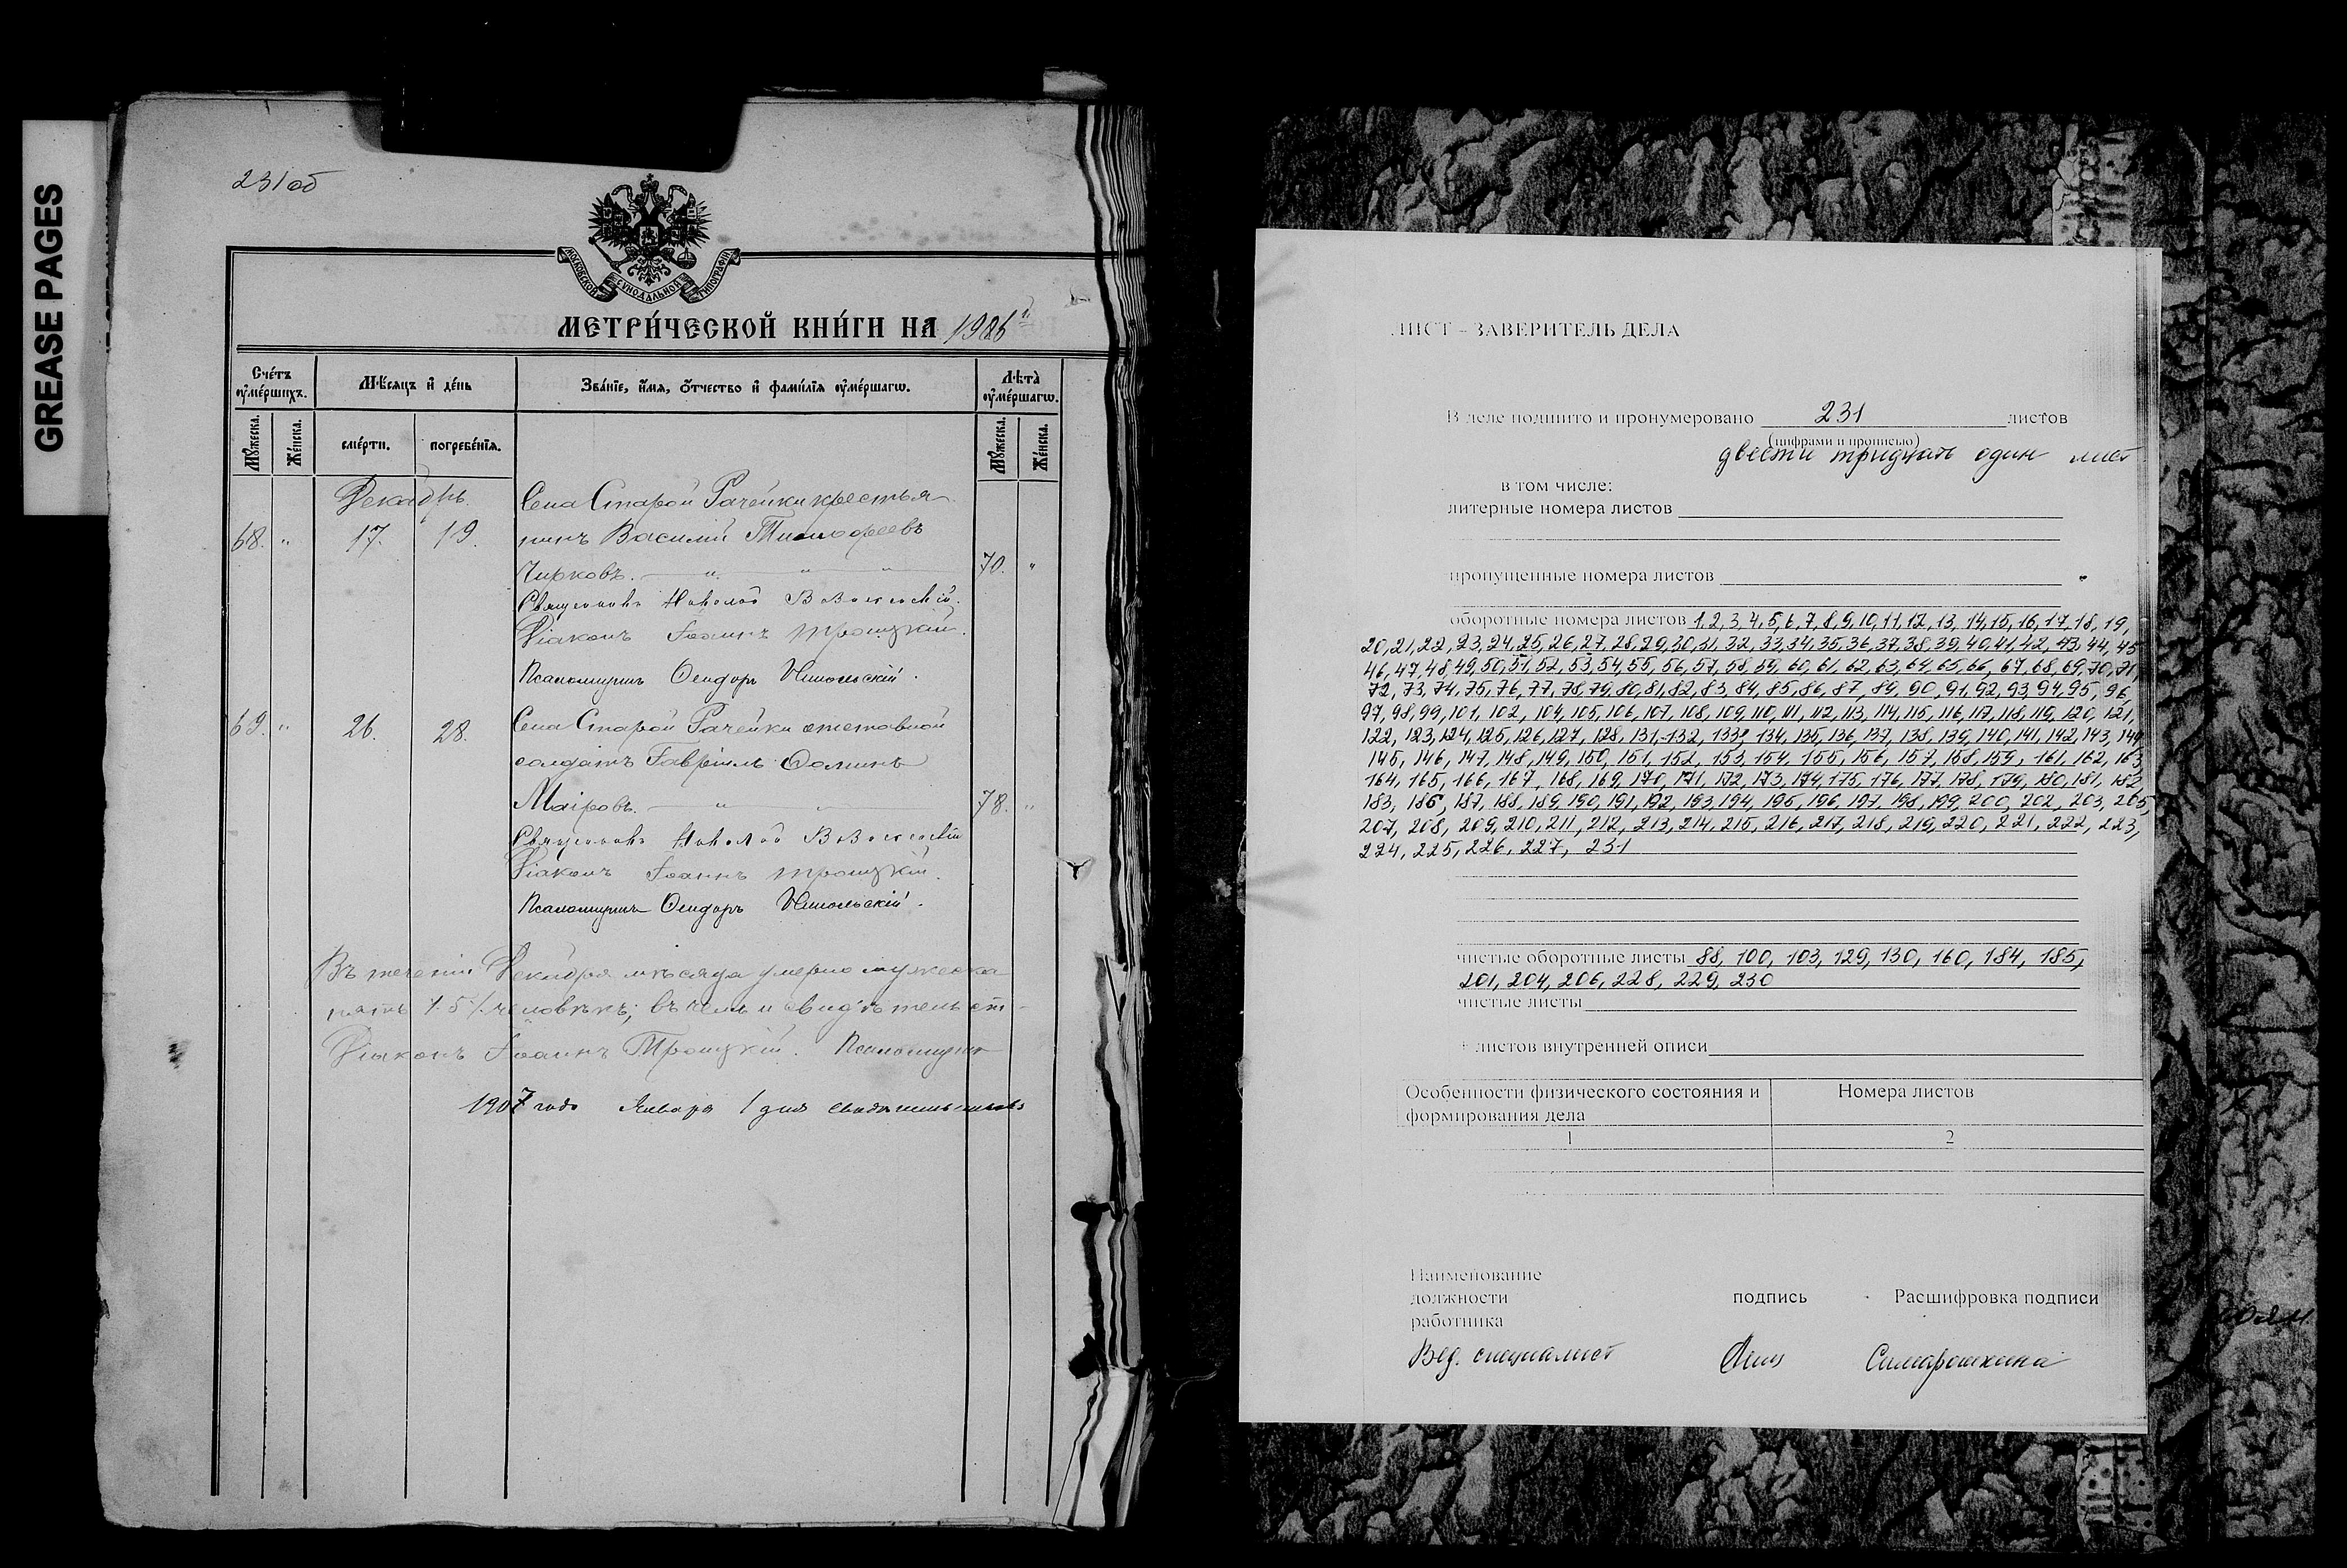 GREASE PAGES
231об
МОСКОВСКОЙ СѴНОДАЛЬНОЙ ТИПОГРАФІИ
МЕТРИ́ЧЕСКОЙ КНИ́ГИ НА 1906
Сче́тъ ᲂумéршихъ.
Мѣ́сяцъ и де́нь
Зва́нїе, и́мя, ѻ́тчество и фами́лїя ᲂуме́ршагѡ.
Лѣта̀ ᲂуме́ршагѡ.
Мꙋ́жеска.
Же́нска.
сме́рти.
погребе́нїя.
Мꙋ́жеска.
Же́нска.
Декабрь.
Села Старой Рачейки крестья-
68. „ 17. 19. нинъ Василій Тимофеевъ
Чирковъ. — „ — „ — „ — 70. „
Священникъ Николай
Діаконъ Іоаннъ Троицкій.
Псаломщикъ Ѳеодоръ Никольскій.
69. „ 26. 28. Села Старой Рачейки отставной
солдатъ Гавріилъ Ѳоминъ
Маіровъ. — „ — „ — 78. „
Священникъ Николай
Діаконъ Іоаннъ Троицкій.
Псаломщикъ Ѳеодоръ Никольскій.
Въ теченіи Декабря мѣсяца умерло мужеска
пять /5/ человѣкъ; въ чемъ и свидѣтельст-
Діаконъ Іоаннъ Троицкій. Псаломщикъ
1907 года Января 1 дня
ЛИСТ - ЗАВЕРИТЕЛЬ ДЕЛА
В деле подшито и пронумеровано 231 листов
(цифрами и прописью)
двести тридцать один лист
в том числе:
литерные номера листов
пропущенные номера листов
оборотные номера листов 1,2,3,4,5,6,7,8,9,10,11,12,13,14,15,16,17,18,19,
20,21,22,23,24,25,26,27,28,29,30,31,32,33,34,35,36,37,38,39,40,41,42,43,44,45
46,47,48,49,50,51,52,53,54,55,56,57,58,59,60,61,62,63,64,65,66,67,68,69,70,71,
72,73,74,75,76,77,78,79,80,81,82,83,84,85,86,87,89,90,91,92,93,94,95,96,
97,98,99,101,102,104,105,106,107,108,109,110,111,112,113,114,115,116,117,118,119,120,121,
122,123,124,125,126,127,128,131,132,133,134,135,136,137,138,139,140,141,142,143,144
145,146,147,148,149,150,151,152,153,154,155,156,157,158,159,161,162,163
164,165,166,167,168,169,170,171,172,173,174,175,176,177,178,179,180,181,182
183,186,187,188,189,190,191,192,193,194,195,196,197,198,199,200,202,203,205,
207,208,209,210,211,212,213,214,215,216,217,218,219,220,221,222,223,
224,225,226,227,231
чистые оборотные листы 88, 100, 103, 129, 130, 160, 184, 185,
201, 204, 206, 228, 229, 230
чистые листы
+ листов внутренней описи
Особенности физического состояния и формирования дела
Номера листов
1
2
Наименование
должности
работника
подпись
Расшифровка подписи
Вед. специалист